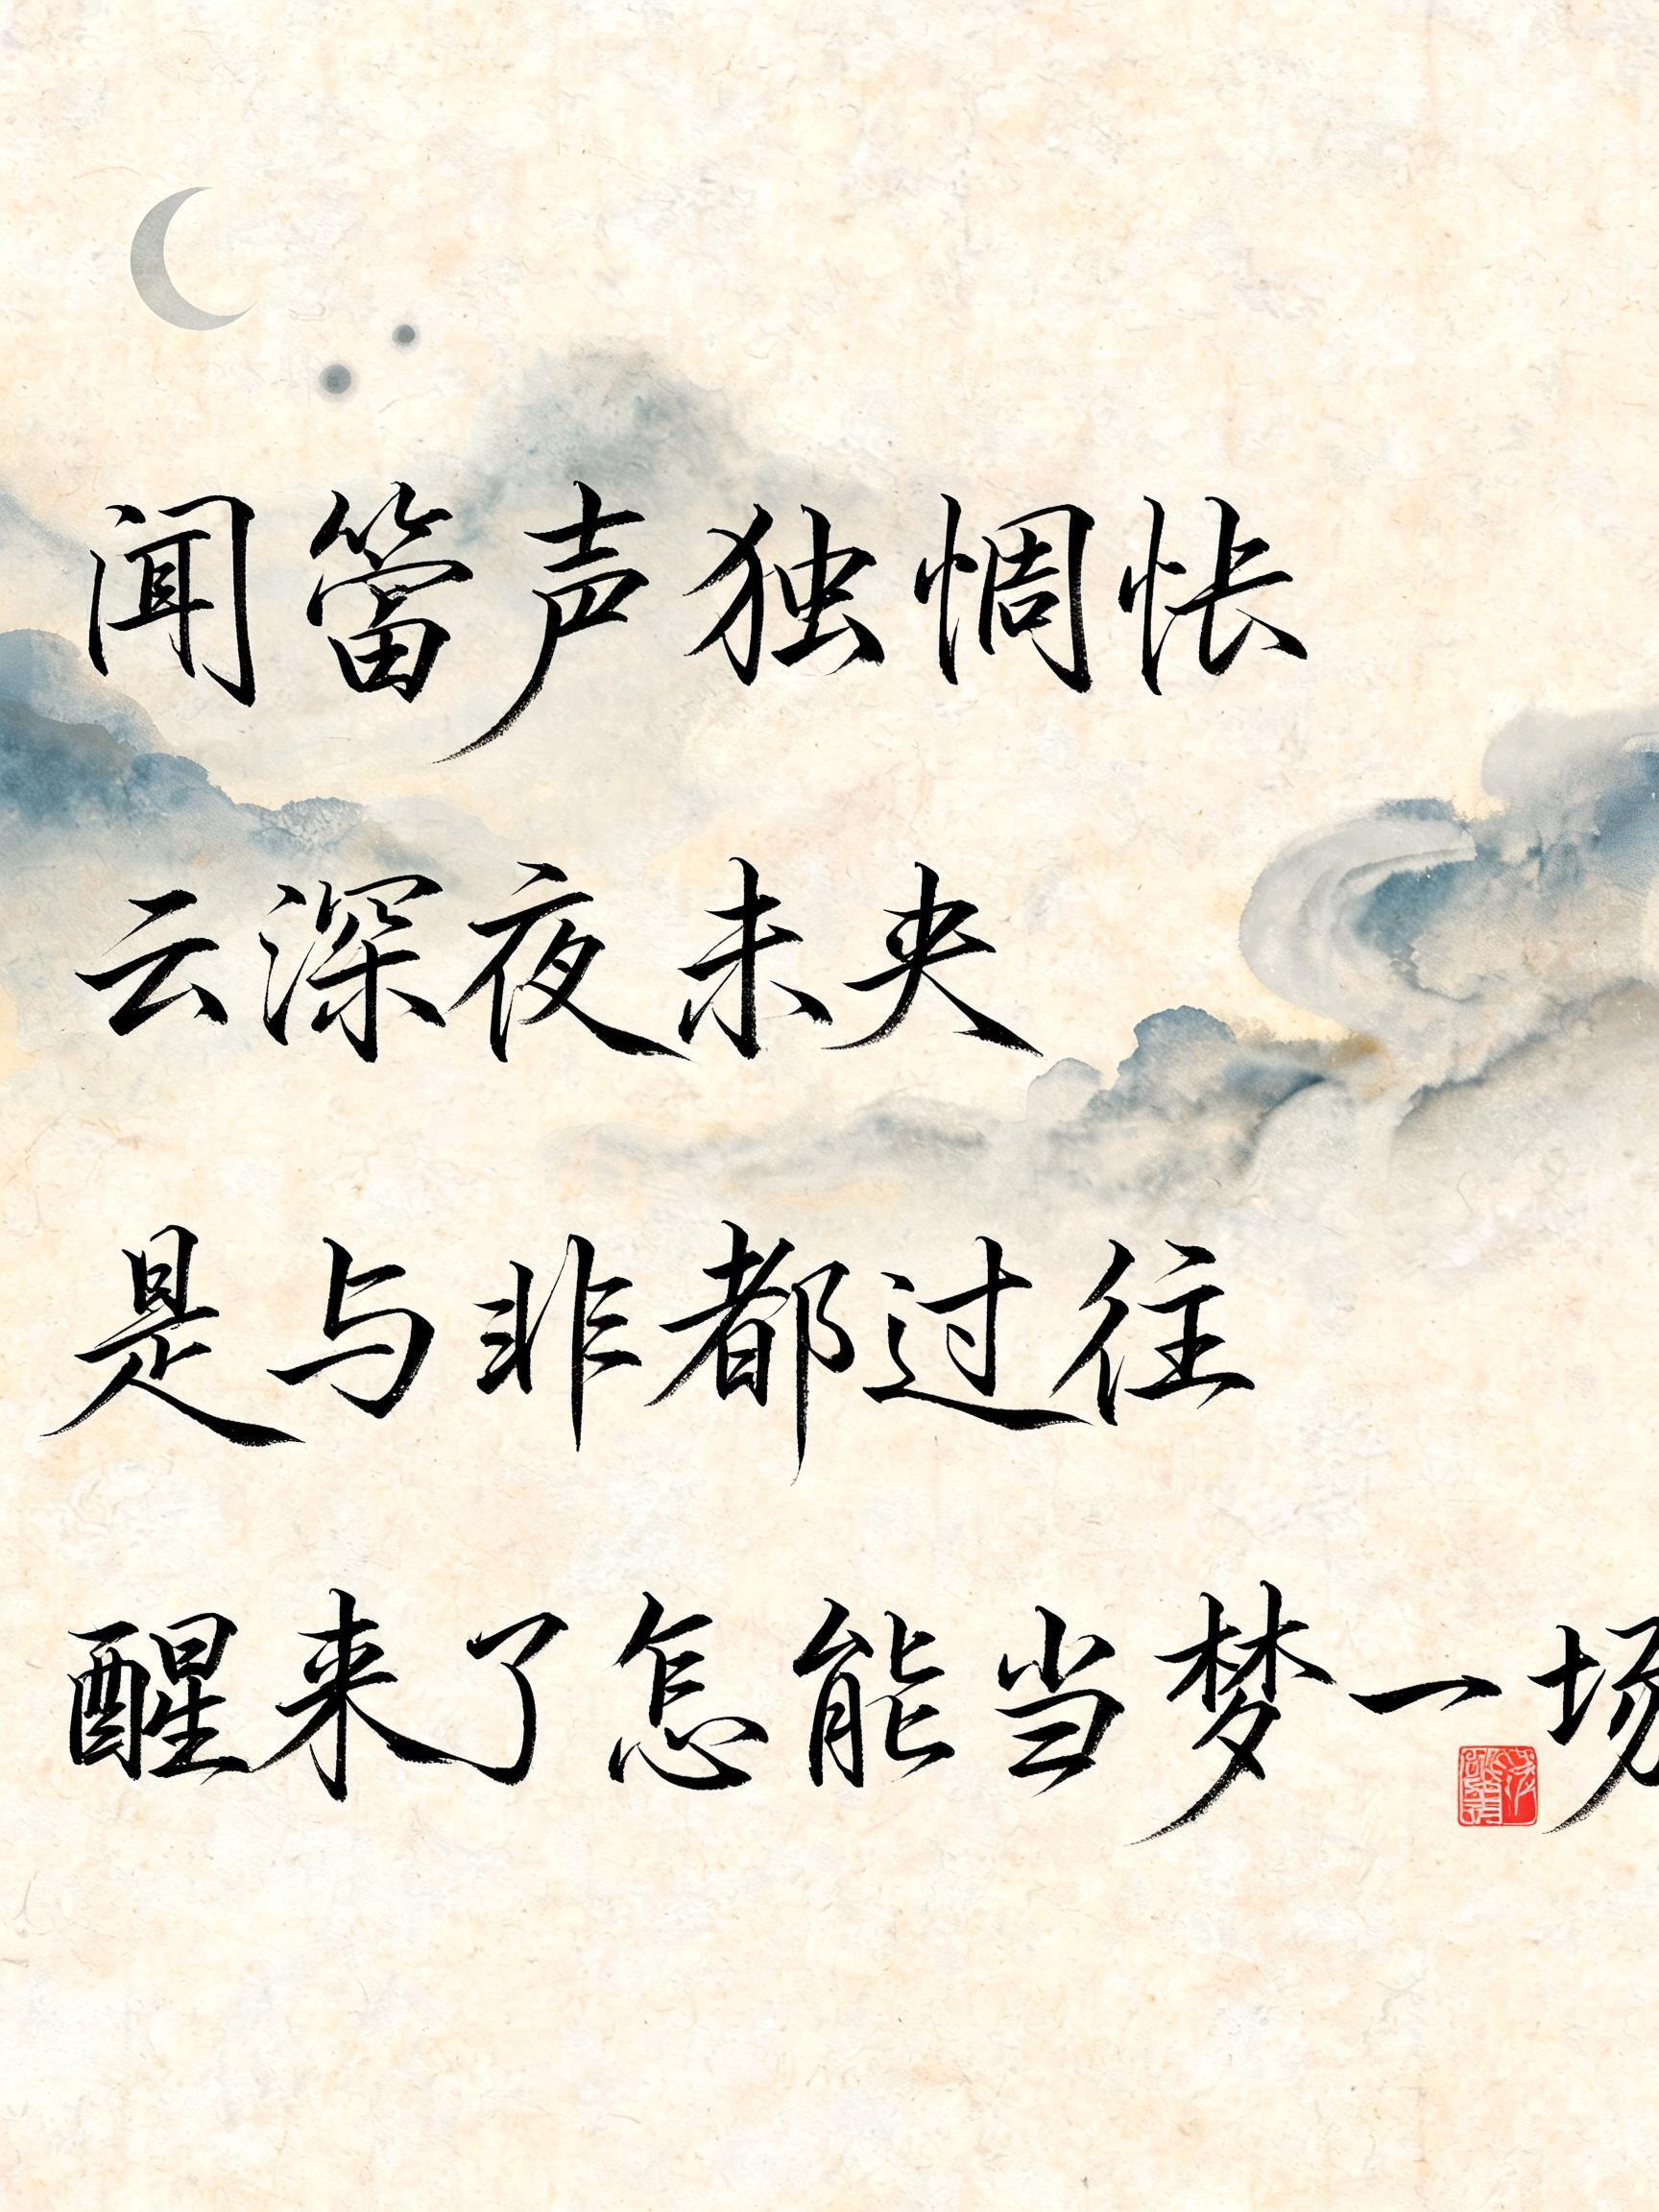 闻笛声独惆怅
云深夜未央
是与非都过往
醒来了怎能当梦一场